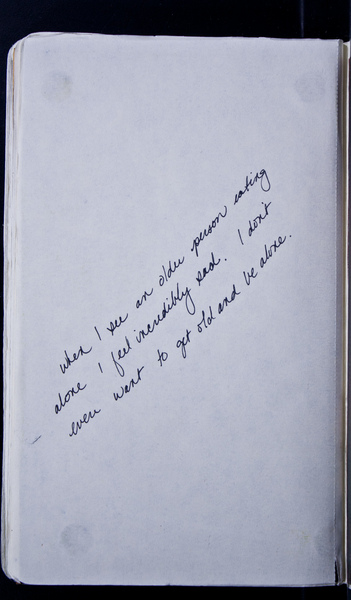 when I see an older person eating
alone I feel incredibly sad. I don't
even want to get old and be alone.